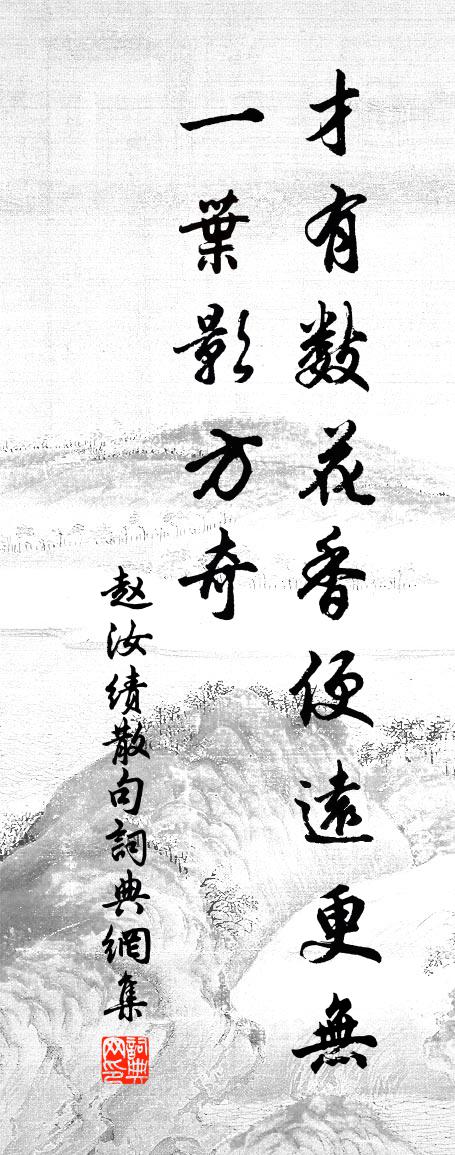 才有数花香便遠更無
一葉影方奇
赵汝績散句詞典網集
詞典网印